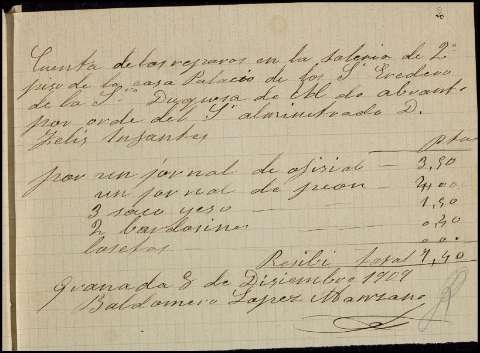 Cuenta de los reparos en la Galeria de 2º
piso de la casa Palacio de los Sres Eredero
de la Sra Duquesa de M de abrante
por orde del Sr alminitrado D.
Felis Infantes
ptas
por un jornal de ofisial — 3,50
un jornal de peon —
3 saco yeso — 1,50
2 bardosines
losetas
Resibi total
Granada 8 de Disiembre 1909
Baldomero Lopez Manzano